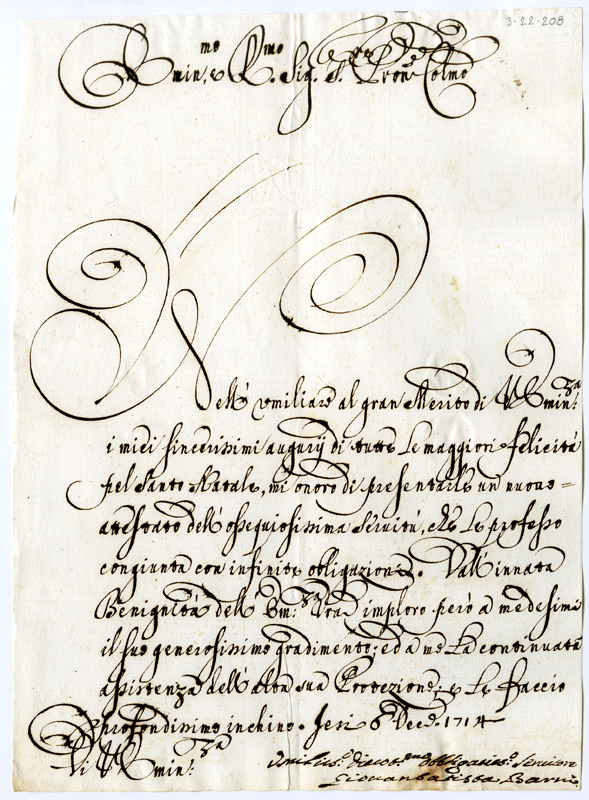 3-22-208
Emin.e R.mo Sig. S. Pron Colmo
Nell' umiliare al gran Merito di V. Emin.za
i miei sincerissimi augurij di tutte le maggiori felicità
pel Santo Natale, mi onoro di presentarle un nuovo =
attestato dell' ossequiosissima servitù, che le professo
congiunta con infinite obligazioni. Dall' innata
Benignità dell' Em.za Vra imploro però a medesimi
il suo generosissimo gradimento; ed a me la continuata
assistenza dell' alta sua Protezione; e le faccio
profondissimo inchino. Jesi 6 Dece. 1714
Di V. Emin.za
Umilis.o Divotis.mo Obligatis.o Servitore
Giovanbattista